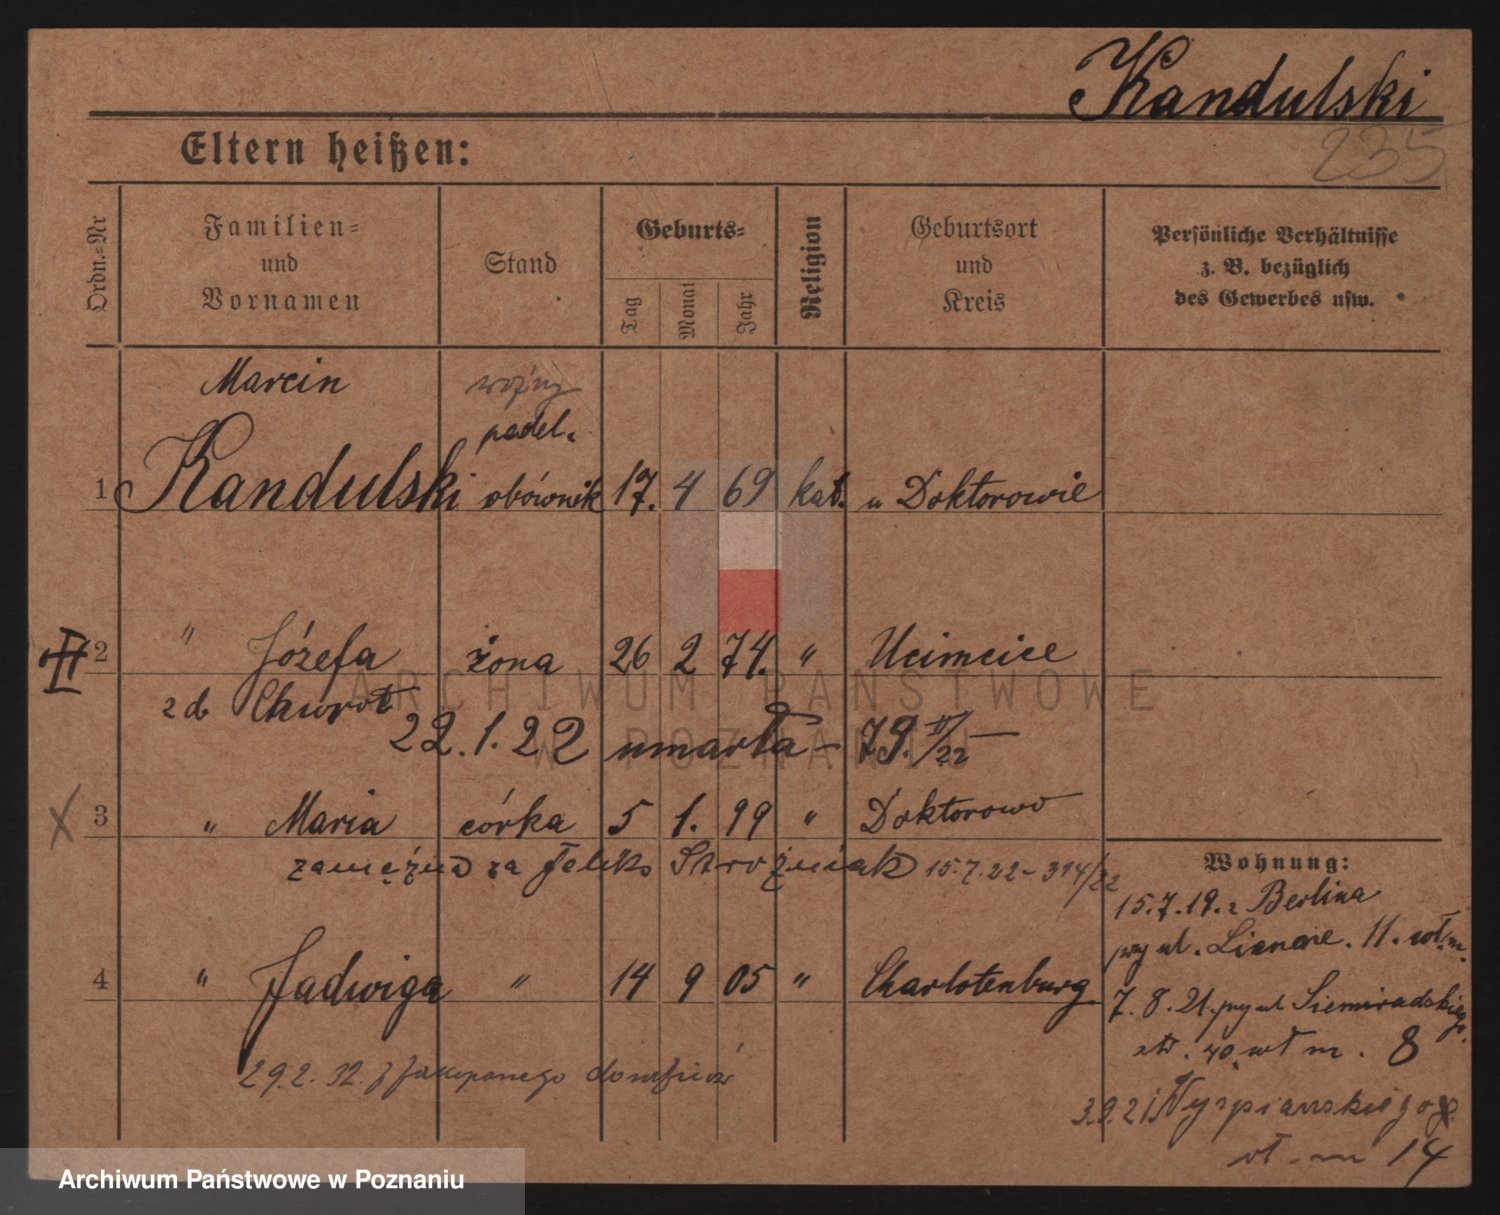 Kandulski
235
Eltern heißen:
Ordn.-Nr
Familien- und Vornamen
Stand
Geburts-
Tag
Monat
Jahr
Religion
Geburtsort und Kreis
Persönliche Verhältnisse z. B. bezüglich des Gewerbes usw.
Marcin
1 Kandulski obównik 17. 4 69 kat. w Doktorowie
2 " Józefa żona 26 2 74. "
zd Chwrot
22.1.22 umarła - 79.
3 " Maria córka 5 1. 99 " Doktorowo
zamężna za Feliks Stróżniak 15.7.22 - 314/22
Wohnung:
15.7.19. z Berlina
przy ul. 11.
4 " Jadwiga " 14 9 05 " Charlotenburg
7. 8. 21. przy ul Siemiradskiego.
m. 8
29.2.32. z Zakopanego
3.9.21 Wyspianskiego
m 14
ARCHIWUM PAŃSTWOWE
W POZNANIU
Archiwum Państwowe w Poznaniu